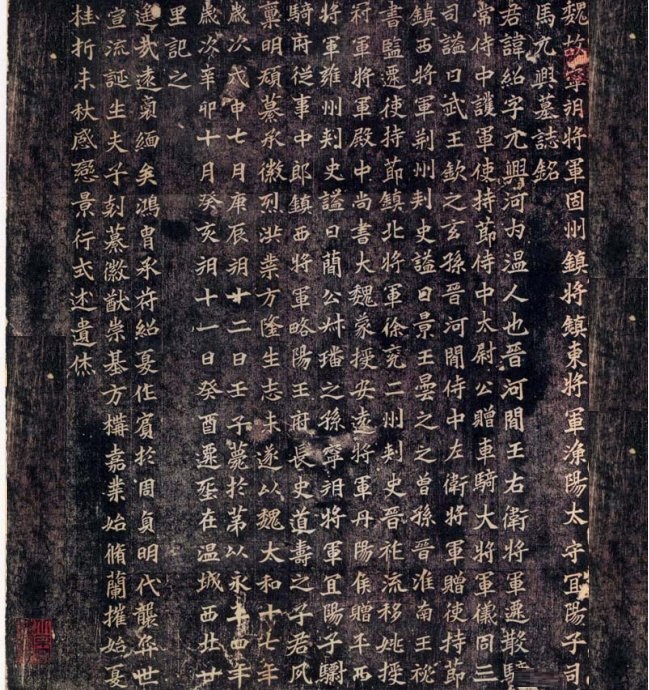 魏故寧朔將軍固州鎮將鎮東將軍漁陽太守宜陽子司
馬元興墓誌銘
君諱紹字元興河內溫人也晉河間王右衛將軍遷散騎
常侍中護軍使持節侍中太尉公贈車騎大將軍儀同三
司謚曰武王欽之玄孫晉河間侍中左衛將軍贈使持節
鎮西將軍荊州刺史謚曰景王曇之之曾孫晉淮南王秘
書監遷使持節鎮北將軍徐兗二州刺史晉祚流移姚授
冠軍將軍殿中尚書大魏蒙授安遠將軍丹陽侯贈平西
將軍雍州刺史謚曰簡公叔璠之孫寧朔將軍宜陽子驃
騎府從事中郎鎮西將軍略陽王府長史道壽之子君夙
稟明碩纂承徽烈洪業方隆生志未遂以魏太和十七年
歲次戊申七月庚辰朔廿二日壬子薨於第以永平四年
歲次辛卯十月癸亥朔十一日癸酉遷塋在溫城西北廿
里記之
遙哉遠裔緬矣鴻胄承符紹夏作賓於周貞明代襲弈世
宣流誕生夫子剋纂徽猷崇基方構嘉業始脩蘭摧始夏
桂折未秋感戀景行式述遺休